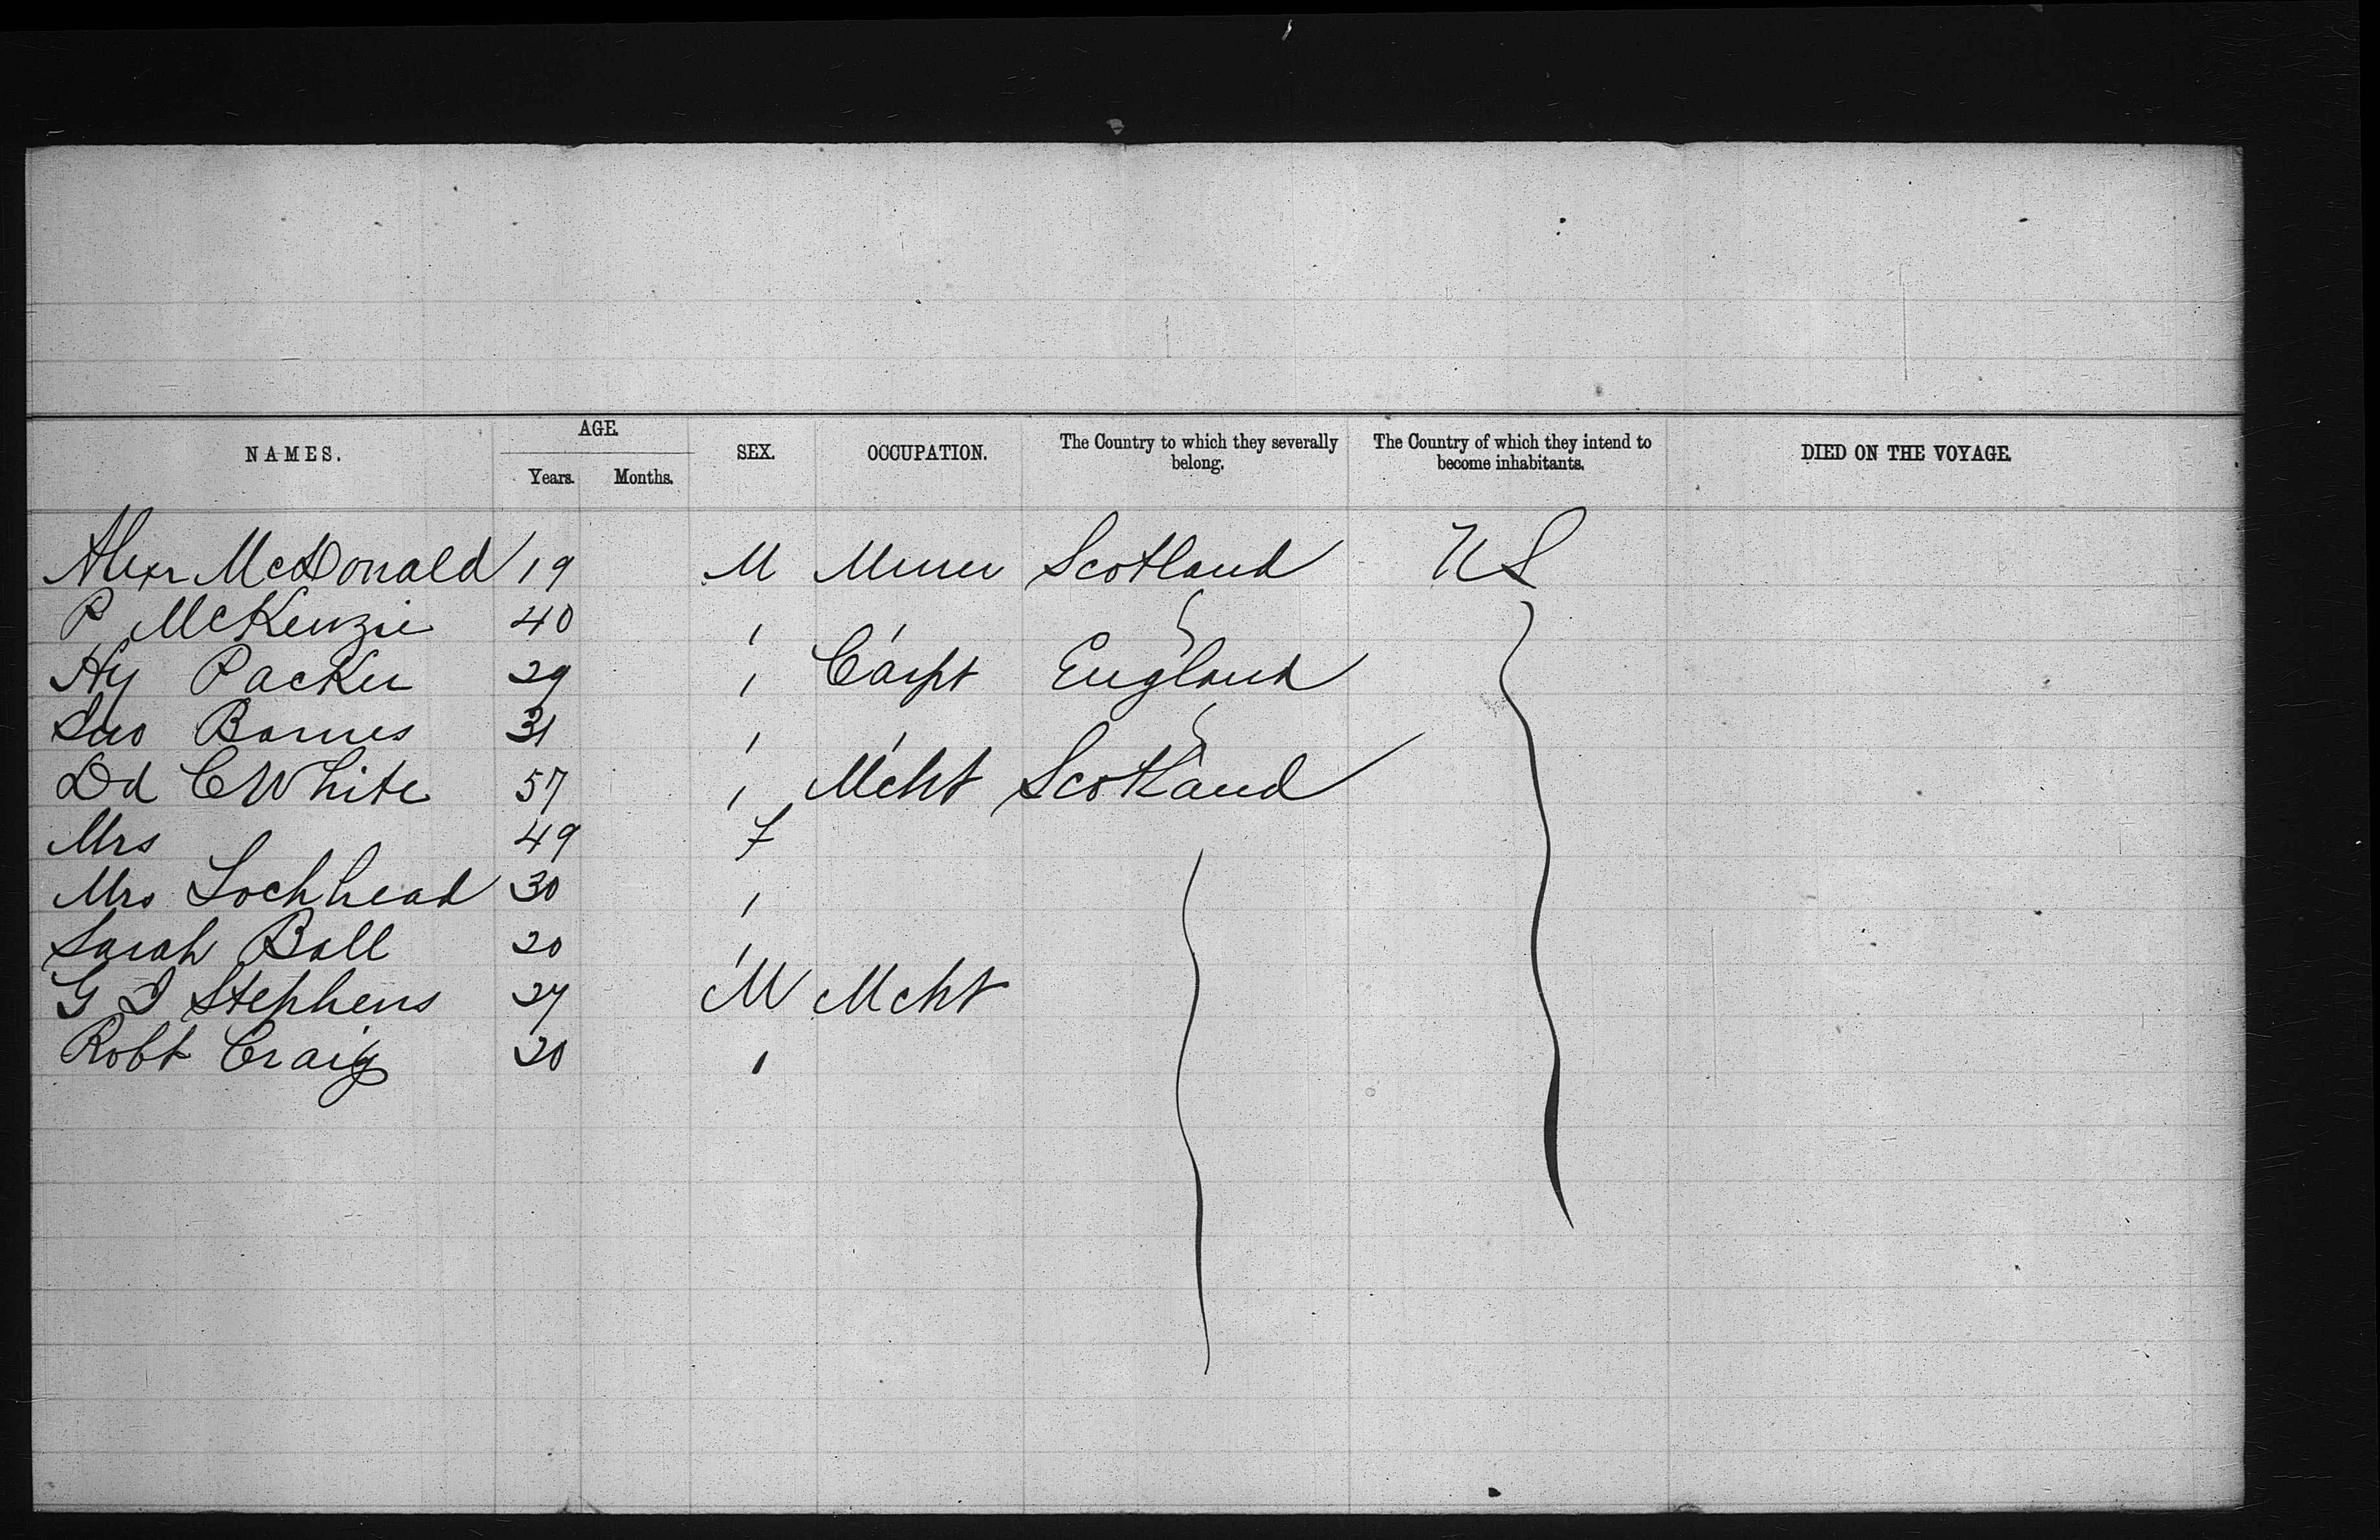 NAMES. AGE. SEX. OCCUPATION. The Country to which they severally belong. The Country of which they intend to become inhabitants. DIED ON THE VOYAGE.
Years. Months.
Alexr McDonald 19 M Miner Scotland US
P McKenzie 40 " "
Hy Packer 29 " Carpt England
Barnes 31 " "
Dd C White 57 " Mcht Scotland
Mrs 49 F
Mrs Lochhead 30 "
Sarah Ball 20 "
G I Stephens 27 M Mcht
Robt Craig 20 "